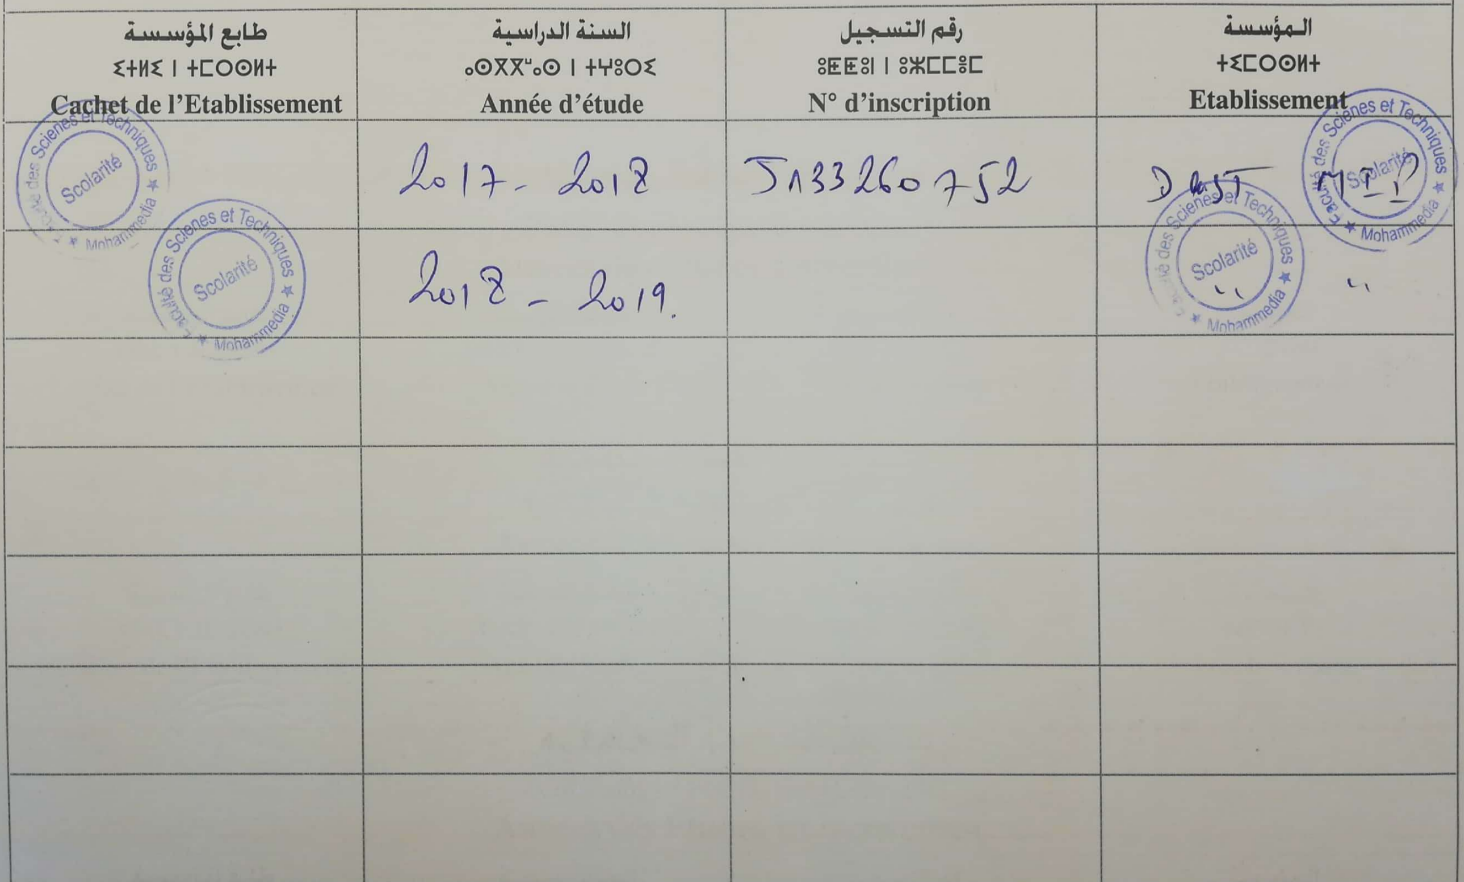 طابع المؤسسة
ⵉⵜⵍⵉ ⵏ ⵜⵎⵔⵙⵍⵜ
Cachet de l'Etablissement
السنة الدراسية
ⴰⵙⴳⴳⵯⴰⵙ ⵏ ⵜⵖⵓⵔⵉ
Année d'étude
رقم التسجيل
ⵓⵟⵟⵓⵏ ⵏ ⵓⵣⵎⵎⵓⵎ
N° d'inscription
المؤسسة
ⵜⵉⵎⵔⵙⵍⵜ
Etablissement
Faculté des Scienes et Techniques ★ Mohammedia ★
Scolarité
2017 - 2018
J133260752
MIP
Faculté des Scienes et Techniques ★ Mohammedia ★
Scolarité
Faculté des Scienes et Techniques ★ Mohammedia ★
Scolarité
2018 - 2019.
Faculté des Scienes et Techniques ★ Mohammedia ★
Scolarité
" "